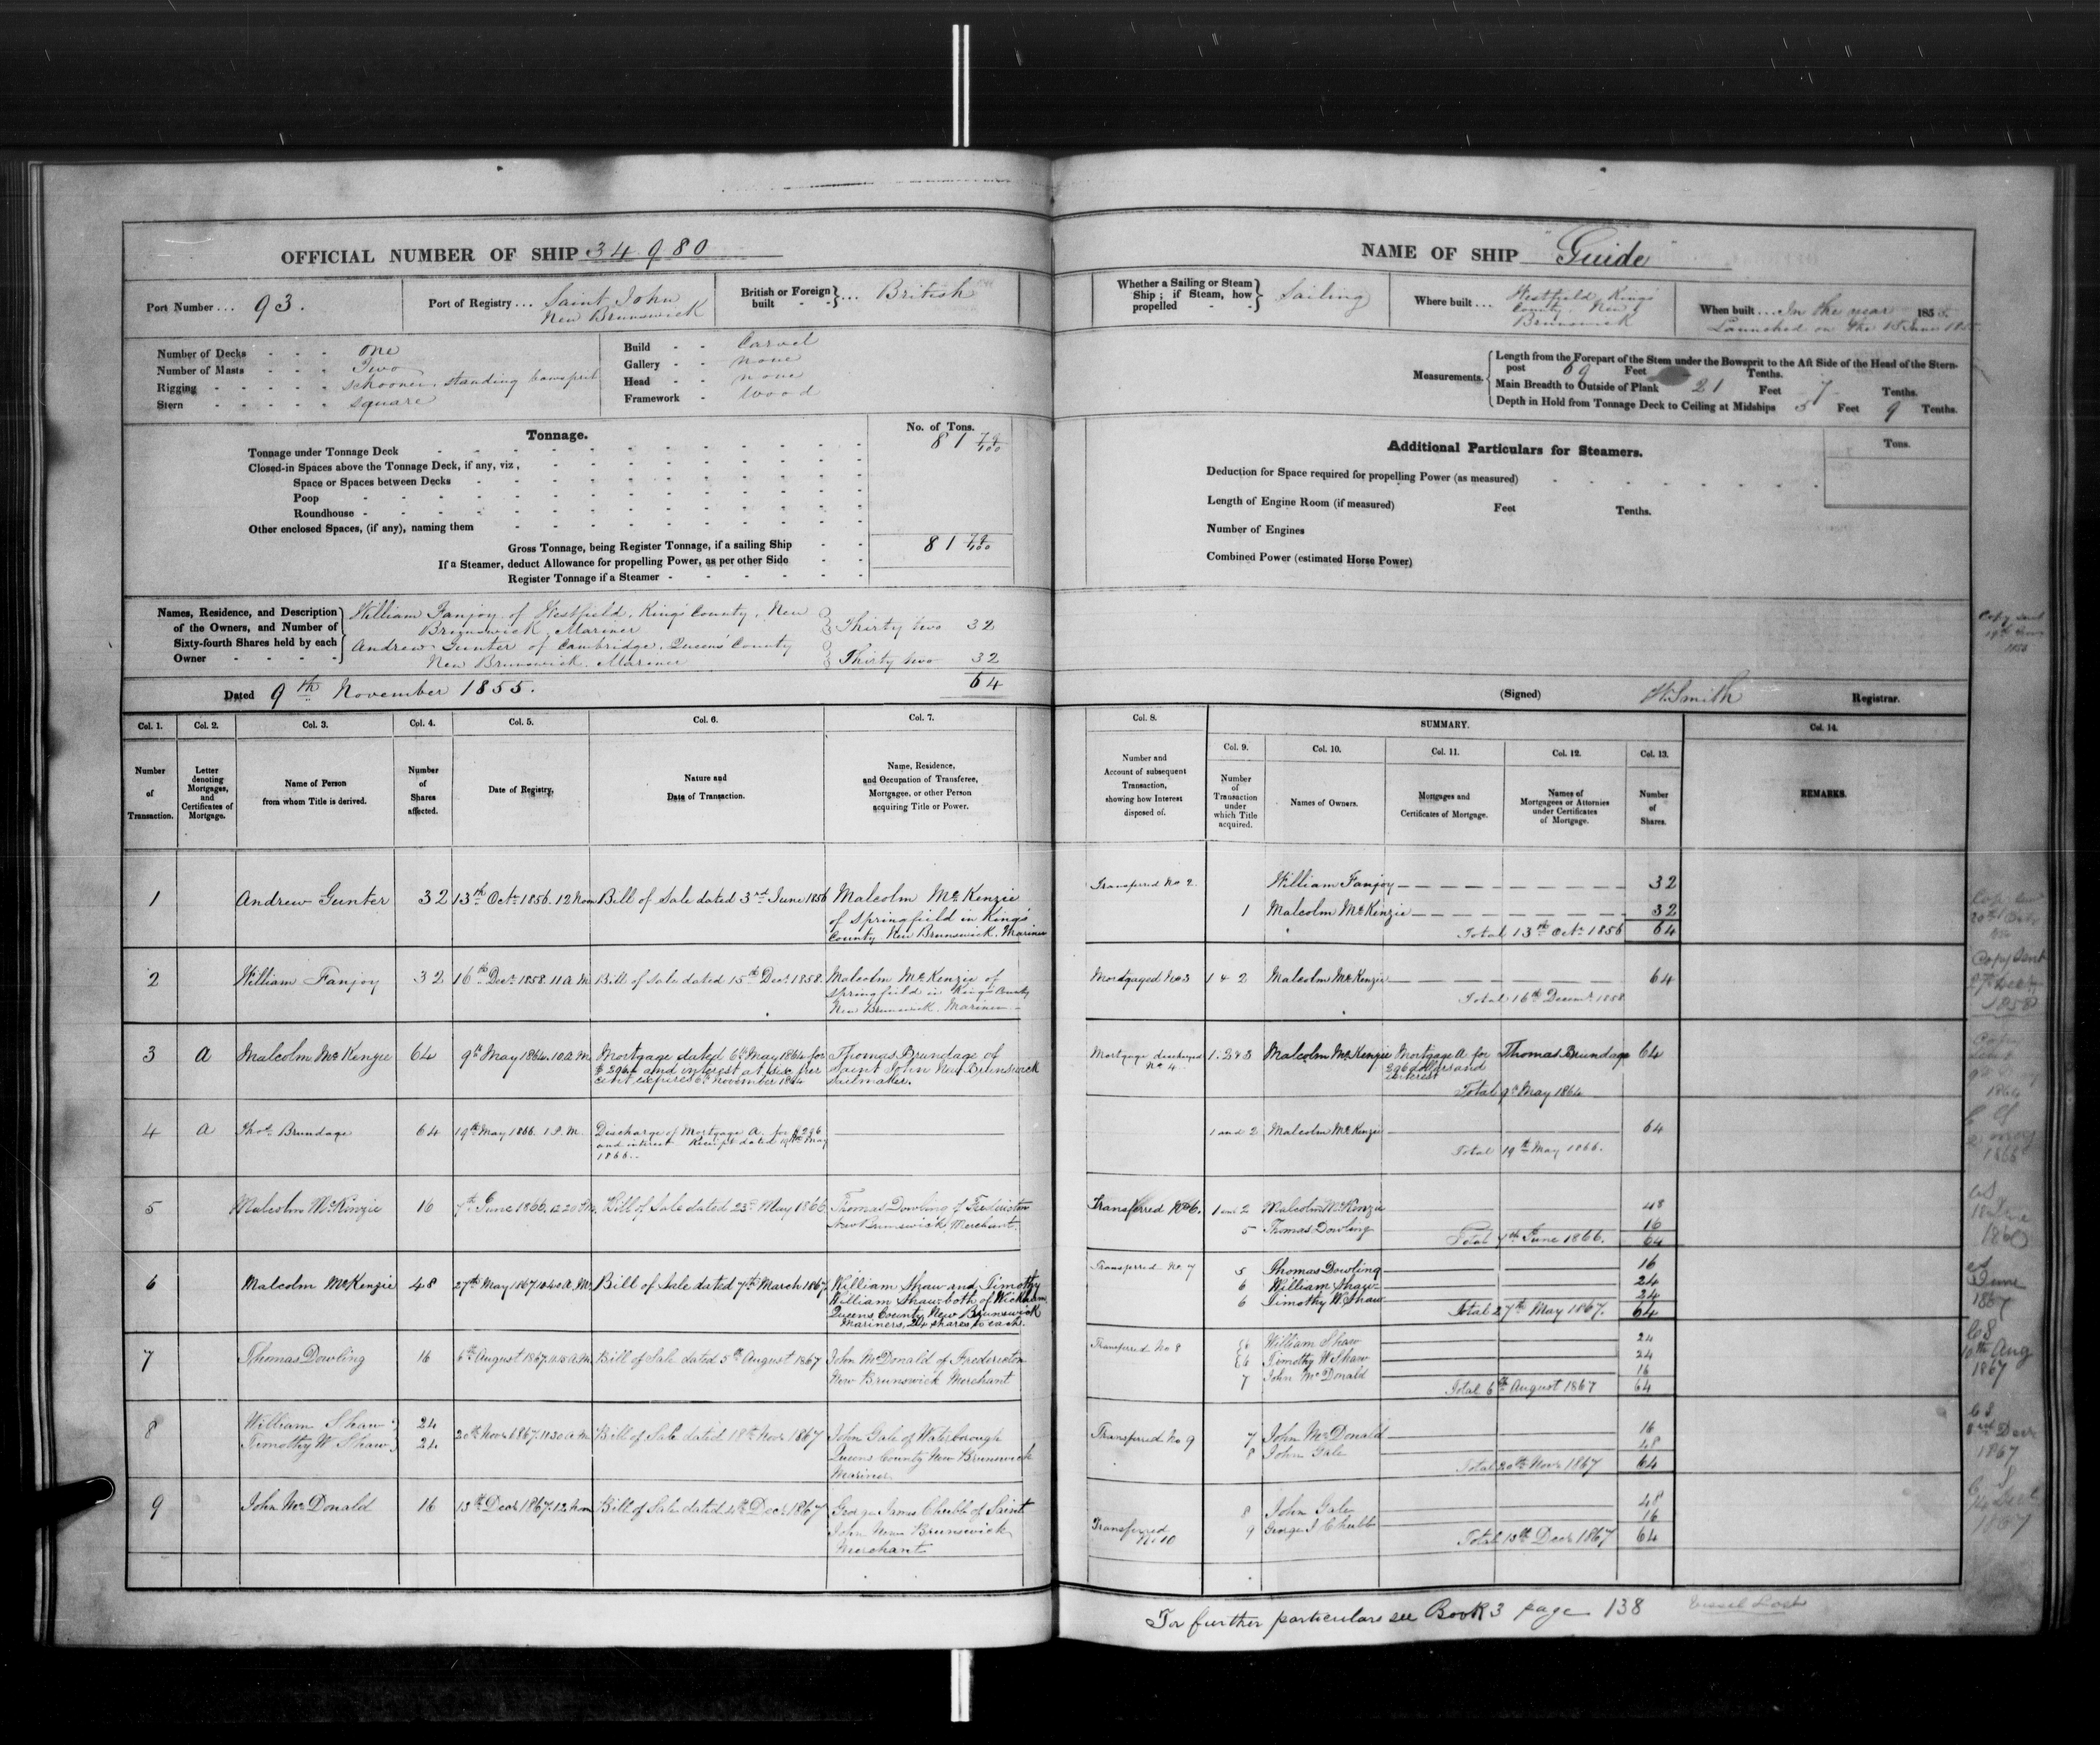 OFFICIAL NUMBER OF SHIP 34.980
Port Number ... 93.
Port of Registry ... Saint John
New Brunswick
British or Foreign built ... British
Number of Decks - - - One
Number of Masts - - - Two
Rigging - - - - - schooner, standing bowsprit
Stern - - - - - square
Build - - Carvel
Gallery - - none
Head - - none
Framework - Wood
Tonnage.
No. of Tons.
Tonnage under Tonnage Deck 81 79/100
Closed-in Spaces above the Tonnage Deck, if any, viz,
Space or Spaces between Decks
Poop
Roundhouse
Other enclosed Spaces, (if any), naming them
Gross Tonnage, being Register Tonnage, if a sailing Ship 81 79/100
If a Steamer, deduct Allowance for propelling Power, as per other Side
Register Tonnage if a Steamer
Names, Residence, and Description
of the Owners, and Number of
Sixty-fourth Shares held by each
Owner
William Fanjoy of Westfield, King's County, New
Brunswick, Mariner Thirty two 32
Andrew Gunter of Cambridge, Queen's County
New Brunswick, Mariner Thirty two 32
64
Dated 9th November 1855.
Col. 1. Col. 2. Col. 3. Col. 4. Col. 5. Col. 6. Col. 7.
Number of Transaction.
Letter denoting Mortgages, and Certificates of Mortgage.
Name of Person from whom Title is derived.
Number of Shares affected.
Date of Registry,
Nature and Date of Transaction.
Name, Residence, and Occupation of Transferee, Mortgagee, or other Person acquiring Title or Power.
1 Andrew Gunter 32 13th Octr 1856. 12 Noon Bill of Sale dated 3rd June 1856 Malcolm McKenzie
of Springfield in King's
County New Brunswick. Mariner
2 William Fanjoy 32 16th Decr 1858. 11 A M Bill of Sale dated 15th Decr 1858. Malcolm McKenzie of
Springfield in King's County
New Brunswick. Mariner
3 A Malcolm McKenzie 64 9th May 1864. 10 A.M. Mortgage dated 6th May 1864 for
$296 and interest at six per
cent expires 6th November 1864
Thomas Brundage of
Saint John New Brunswick
Sailmaker.
4 A Thos Brundage 64 19th May 1866. 1 P.M. Discharge of Mortgage A. for $296
and interest Receipt dated May
1866.
5 Malcolm McKenzie 16 7th June 1866. 12.20 P.M. Bill of Sale dated 23rd May 1866 Thomas Dowling of Fredericton
New Brunswick, Merchant.
6 Malcolm McKenzie 48 27th May 1867. 10.40 A.M. Bill of Sale dated 7th March 1867 William Shaw and Timothy
William Shaw both of Wickham
Queens County New Brunswick
Mariners, 24 shares to each.
7 Thomas Dowling 16 6th August 1867. A.M. Bill of Sale dated 5th August 1867 John McDonald of Fredericton
New Brunswick Merchant
8 William Shaw 24
Timothy W Shaw 24
20th Novr 1867. 11.30 A.M. Bill of Sale dated 18th Novr 1867 John Gale of Waterborough
Queens County New Brunswick
Mariner
9 John McDonald 16 13th Decr 1867. 12 Noon Bill of Sale dated Decr 1867 George James Chubb of Saint
John New Brunswick
Merchant
NAME OF SHIP "Guide"
Whether a Sailing or Steam
Ship; if Steam, how
propelled
Sailing
Where built ... Westfield, King's
County, New
Brunswick
When built ... In the year 1855
Launched on the June
Measurements.
Length from the Forepart of the Stem under the Bowsprit to the Aft Side of the Head of the Stern-
post 69 Feet Tenths.
Main Breadth to Outside of Plank 21 Feet 7 Tenths.
Depth in Hold from Tonnage Deck to Ceiling at Midships 5 Feet 9 Tenths.
Additional Particulars for Steamers.
Tons.
Deduction for Space required for propelling Power (as measured)
Length of Engine Room (if measured) Feet Tenths.
Number of Engines
Combined Power (estimated Horse Power)
Copy sent
(Signed) W. Smith Registrar.
Col. 8.
Number and Account of subsequent Transaction, showing how Interest disposed of.
SUMMARY.
Col. 9. Col. 10. Col. 11. Col. 12. Col. 13. Col. 14.
Number of Transaction under which Title acquired.
Names of Owners.
Mortgages and Certificates of Mortgage.
Names of Mortgagees or Attornies under Certificates of Mortgage.
Number of Shares.
REMARKS.
Transferred No 2. William Fanjoy 32
1 Malcolm McKenzie 32
Total 13th Octr 1856 64
Mortgaged No 3 1 & 2 Malcolm McKenzie 64
Total 16th Decemr 1858
Copy sent
1858
Mortgage discharged
No 4
1. 2 & 3 Malcolm McKenzie Mortgage A for
296 dollars and
interest
Thomas Brundage 64
Total 9th May 1864
1864
1 and 2 Malcolm McKenzie 64
Total 19th May 1866.
1866
Transferred No 6. 1 and 2 Malcolm McKenzie 48
5 Thomas Dowling 16
Total 7th June 1866. 64
Transferred No 7 5 Thomas Dowling 16
6 William Shaw 24
6 Timothy W. Shaw 24
Total 27th May 1867. 64
June
1867
Transferred No 8 6 William Shaw 24
6 Timothy W Shaw 24
7 John McDonald 16
Total 6th August 1867 64
10th Aug
1867
Transferred No 9 7 John McDonald 16
8 John Gale 48
Total 20th Novr 1867 64
1867
Transferred
No 10
8 John Gale 48
9 George J Chubb 16
Total 13th Decr 1867 64
1867
For further particulars see Book 3 page 138
Vessel Lost